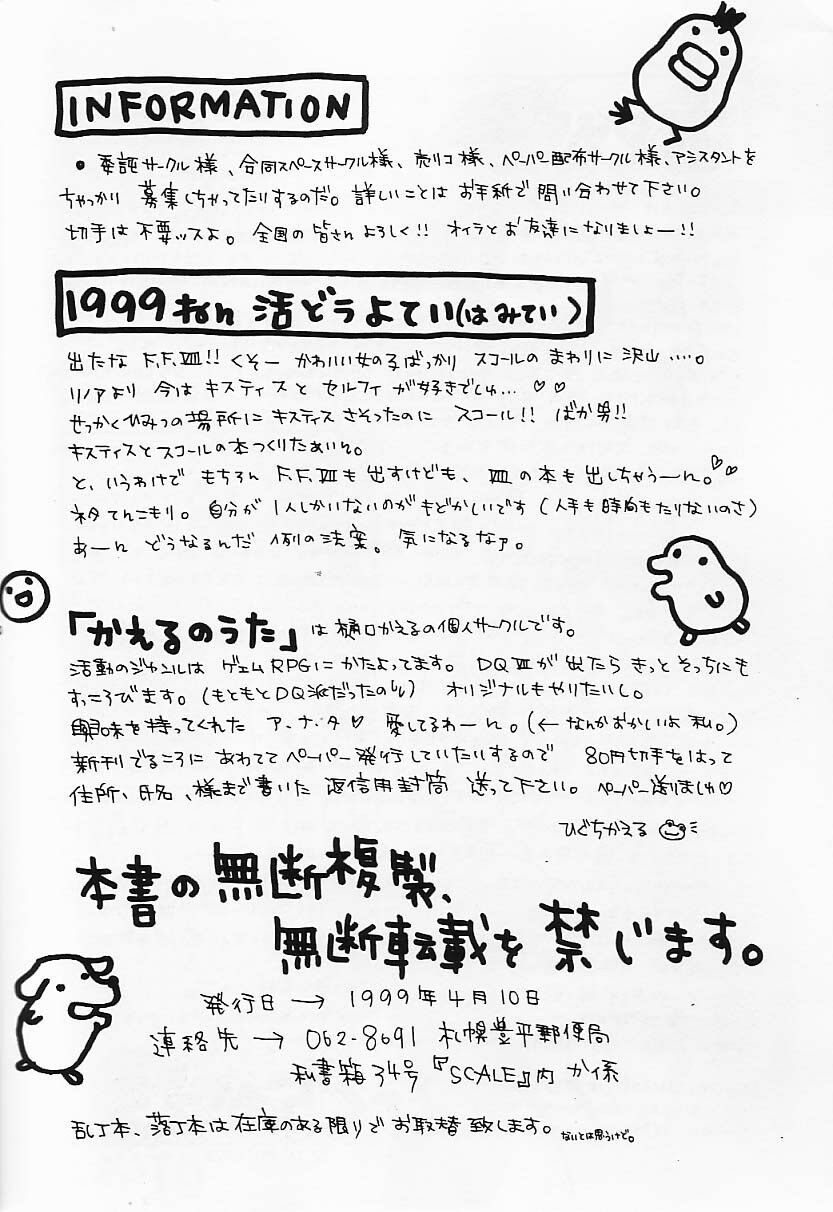 INFORMATION
・委託サークル様、合同スペースサークル様、売リコ様、ペーパー配布サークル様、アシスタントを
ちゃっかり 募集しちゃってたりするのだ。詳しいことは お手紙で 問い合わせて下さい。
切手は 不要ッスよ。 全国の 皆さん よろしく!! オイラと お友達に なりましょー!!
1999ねん 活どうよてい(はみてい)
出たな F.F.VIII!! くそー かわいい女の子ばっかり スコールの まわりに 沢山‥‥。
リノアより 今は キスティスと セルフィ が好きでしゅ… ♡♡
せっかくひみつの場所に キスティス さそったのに スコール!! ばか男!!
キスティスとスコールの本つくりたぁいん。
と、いうわけで もちろん F.F.VIIも出すけども、VIIIの本も出しちゃうーん。♡♡
ネタてんこもり。 自分が 1人しかいないのが もどかしいです (人手も時間もたりないのさ)
あーん どうなるんだ 例の法案。 気になるなァ。
「かえるのうた」は 樋口かえるの個人サークルです。
活動のジャンルは ゲェムRPGに かたよってます。 DQVIIが 出たら きっと そっちにも
すっころびます。(もともとDQ派だったのり) オリジナルもやりたいし。
興味を持ってくれた ア・ナ・タ♡ 愛してるわーん。(← なんかおかしいよ 私。)
新刊でるころに あわててペーパー発行していたいするので 80円切手をはって
住所、氏名、様まで書いた 返信用封筒 送って下さい。 ペーパー送りましゅ♡
ひぐちかえる
本書の無断複製、
無断転載を禁じます。
発行日 → 1999年4月10日
連絡先 → 062-8691 札幌豊平郵便局
私書箱34号『SCALE』内 か係
乱丁本、落丁本は在庫のある限りで お取替 致します。ないとは思うけど。